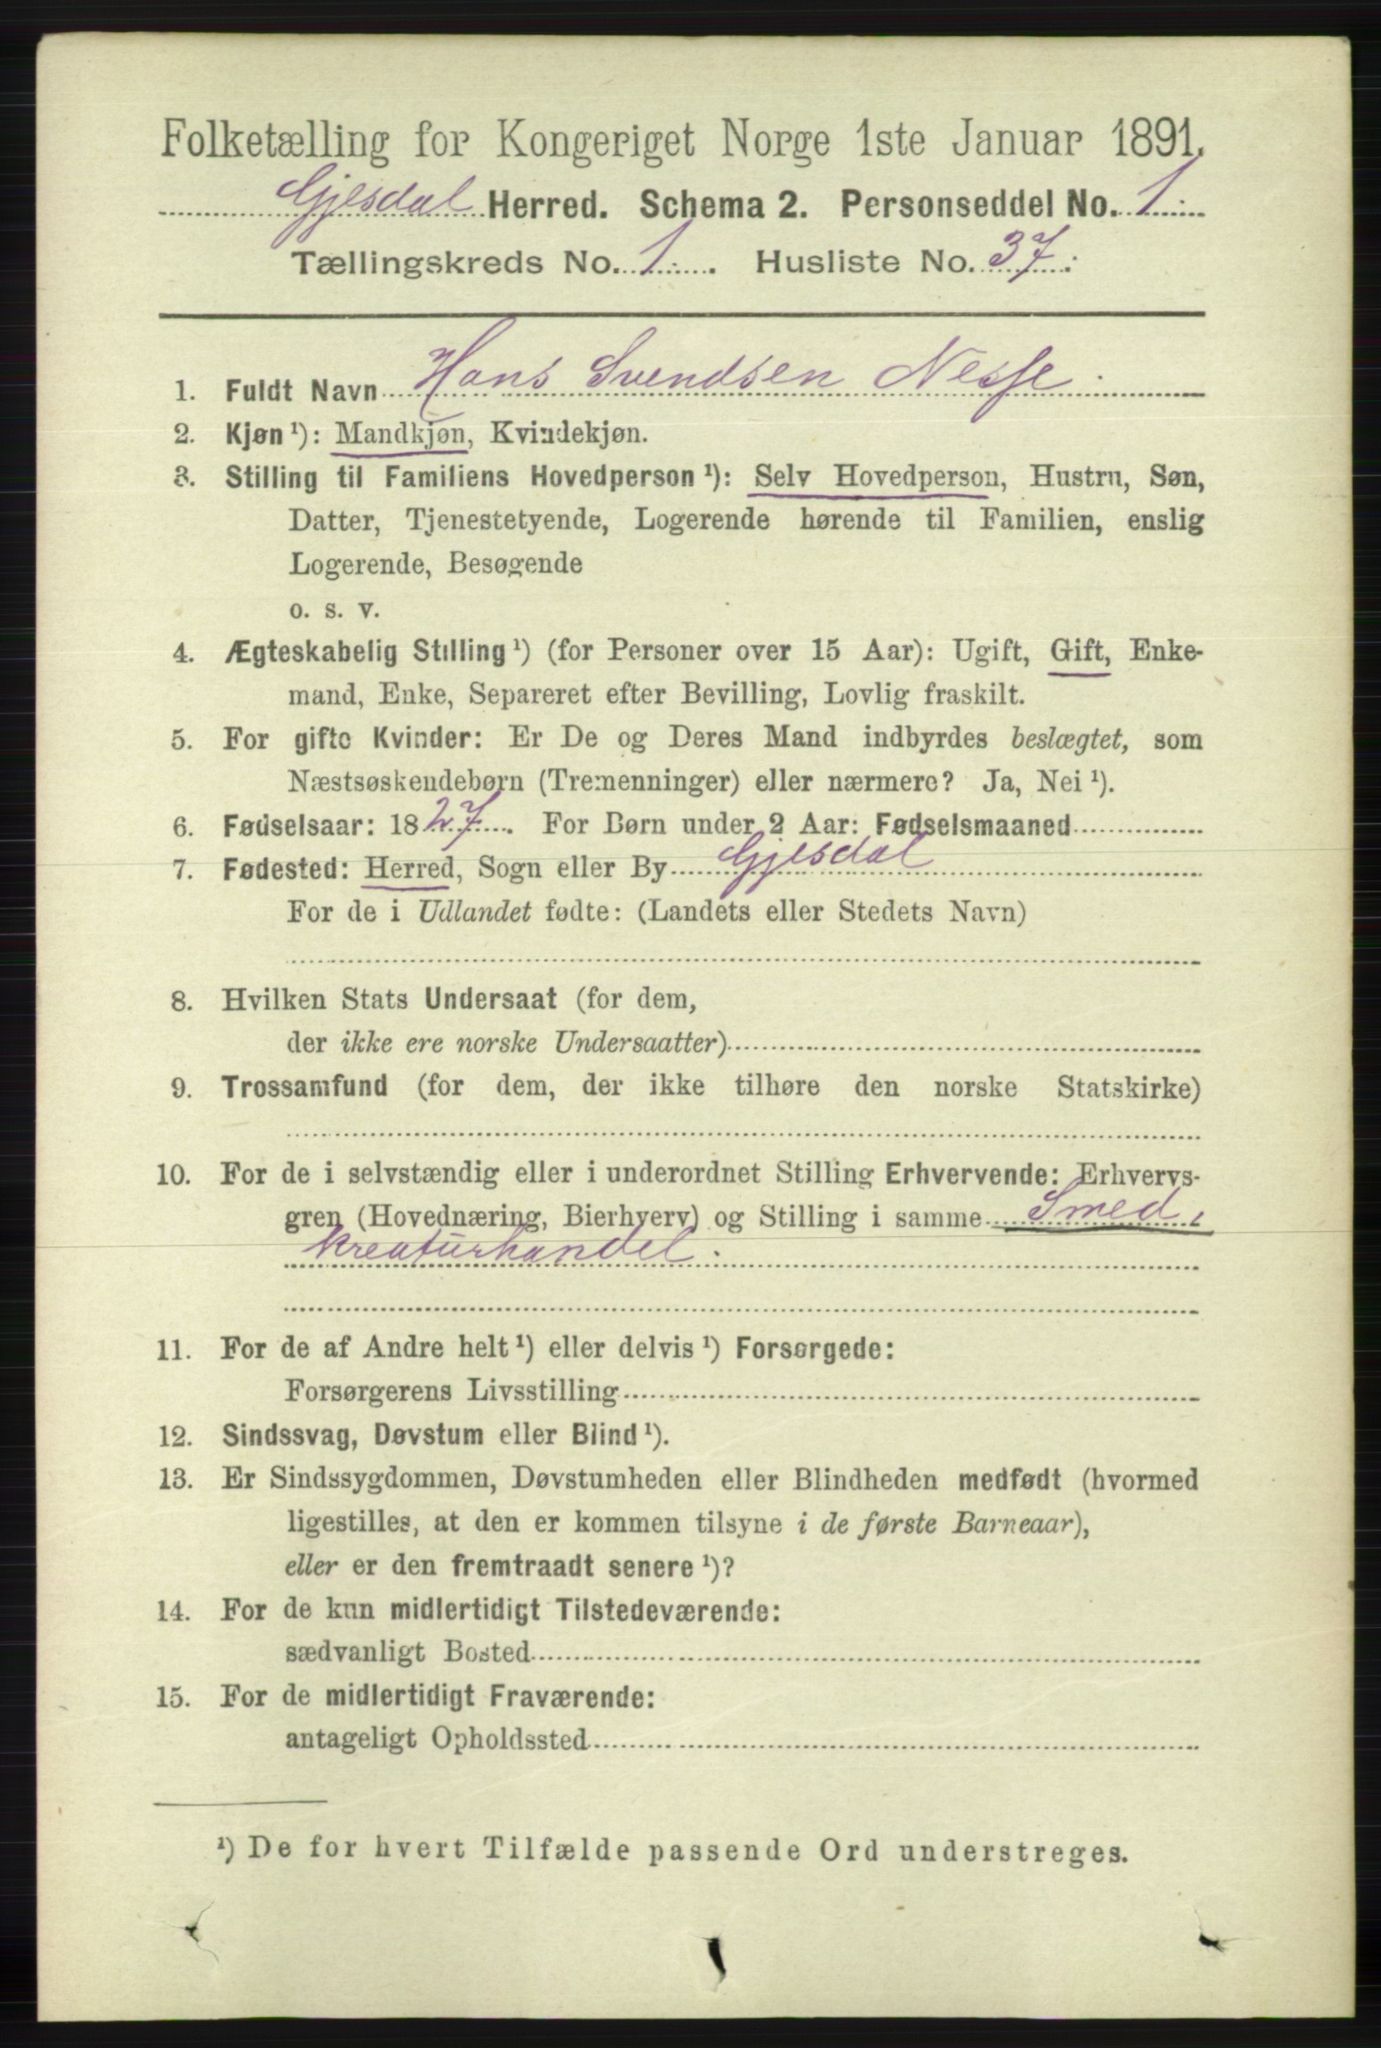 Folketælling for Kongeriget Norge 1ste Januar 1891.
Gjesdal Herred. Schema 2. Personseddel No. 1.
Tællingskreds No. 1. Husliste No. 37.
1. Fuldt Navn Hans Svendsen Nesse.
2. Kjøn ¹): Mandkjøn, Kvindekjøn.
3. Stilling til Familiens Hovedperson ¹): Selv Hovedperson, Hustru, Søn,
Datter, Tjenestetyende, Logerende hørende til Familien, enslig
Logerende, Besøgende
o. s. v.
4. Ægteskabelig Stilling ¹) (for Personer over 15 Aar): Ugift, Gift, Enke-
mand, Enke, Separeret efter Bevilling, Lovlig fraskilt.
5. For gifte Kvinder: Er De og Deres Mand indbyrdes beslægtet, som
Næstsøskendebørn (Tremenninger) eller nærmere? Ja, Nei ¹).
6. Fødselsaar: 1827. For Børn under 2 Aar: Fødselsmaaned
7. Fødested: Herred, Sogn eller By Gjesdal
For de i Udlandet fødte: (Landets eller Stedets Navn)
8. Hvilken Stats Undersaat (for dem,
der ikke ere norske Undersaatter)
9. Trossamfund (for dem, der ikke tilhøre den norske Statskirke)
10. For de i selvstændig eller i underordnet Stilling Erhvervende: Erhvervs-
gren (Hovednæring, Bierhverv) og Stilling i samme Smed,
kreaturhandel.
11. For de af Andre helt ¹) eller delvis ¹) Forsørgede:
Forsørgerens Livsstilling
12. Sindssvag, Døvstum eller Blind ¹).
13. Er Sindssygdommen, Døvstumheden eller Blindheden medfødt (hvormed
ligestilles, at den er kommen tilsyne i de første Barneaar),
eller er den fremtraadt senere ¹)?
14. For de kun midlertidigt Tilstedeværende:
sædvanligt Bosted
15. For de midlertidigt Fraværende:
antageligt Opholdssted
¹) De for hvert Tilfælde passende Ord understreges.